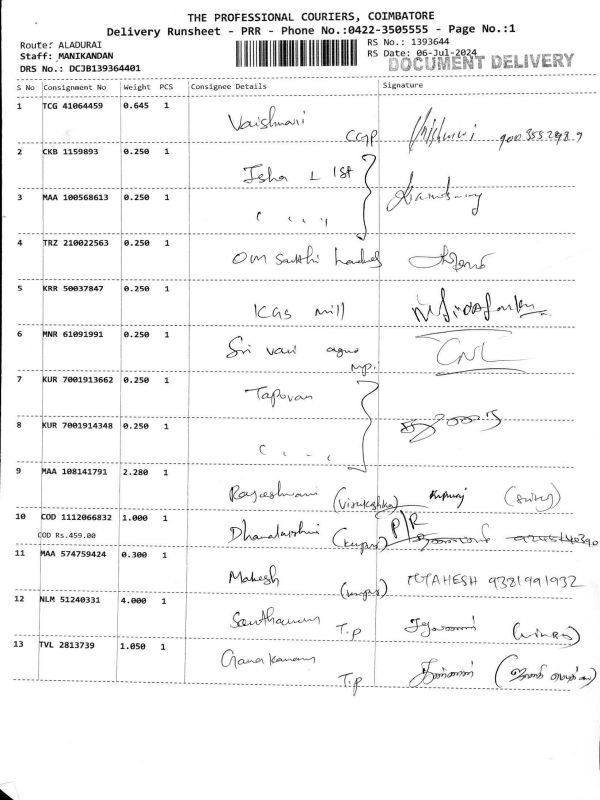 THE PROFESSIONAL COURIERS, COIMBATORE
Delivery Runsheet - PRR - Phone No.:0422-3505555 - Page No.:1
Route: ALADURAI
Staff: MANIKANDAN
DRS No.: DCJB139364401
RS No.: 1393644
RS Date: 06-Jul-2024
DOCUMENT DELIVERY
S No Consignment No Weight PCS Consignee Details Signature
1 TCG 41064459 0.645 1 Vaishnavi CGP
2 CKB 1159893 0.250 1 Isha L 1st
3 MAA 100568613 0.250 1
4 TRZ 210022563 0.250 1 Om Sakthi
5 KRR 50037847 0.250 1 KGS mill
6 MNR 61091991 0.250 1 Sri vari agro
7 KUR 7001913662 0.250 1 Tapovan
8 KUR 7001914348 0.250 1
9 MAA 108141791 2.280 1 Rajeshwari
10 COD 1112066832 1.000 1 P/R
COD Rs.459.00
11 MAA 574759424 0.300 1 Mahesh MAHESH 9381991932
12 NLM 51240331 4.000 1 T.P
13 TVL 2813739 1.050 1 T.P